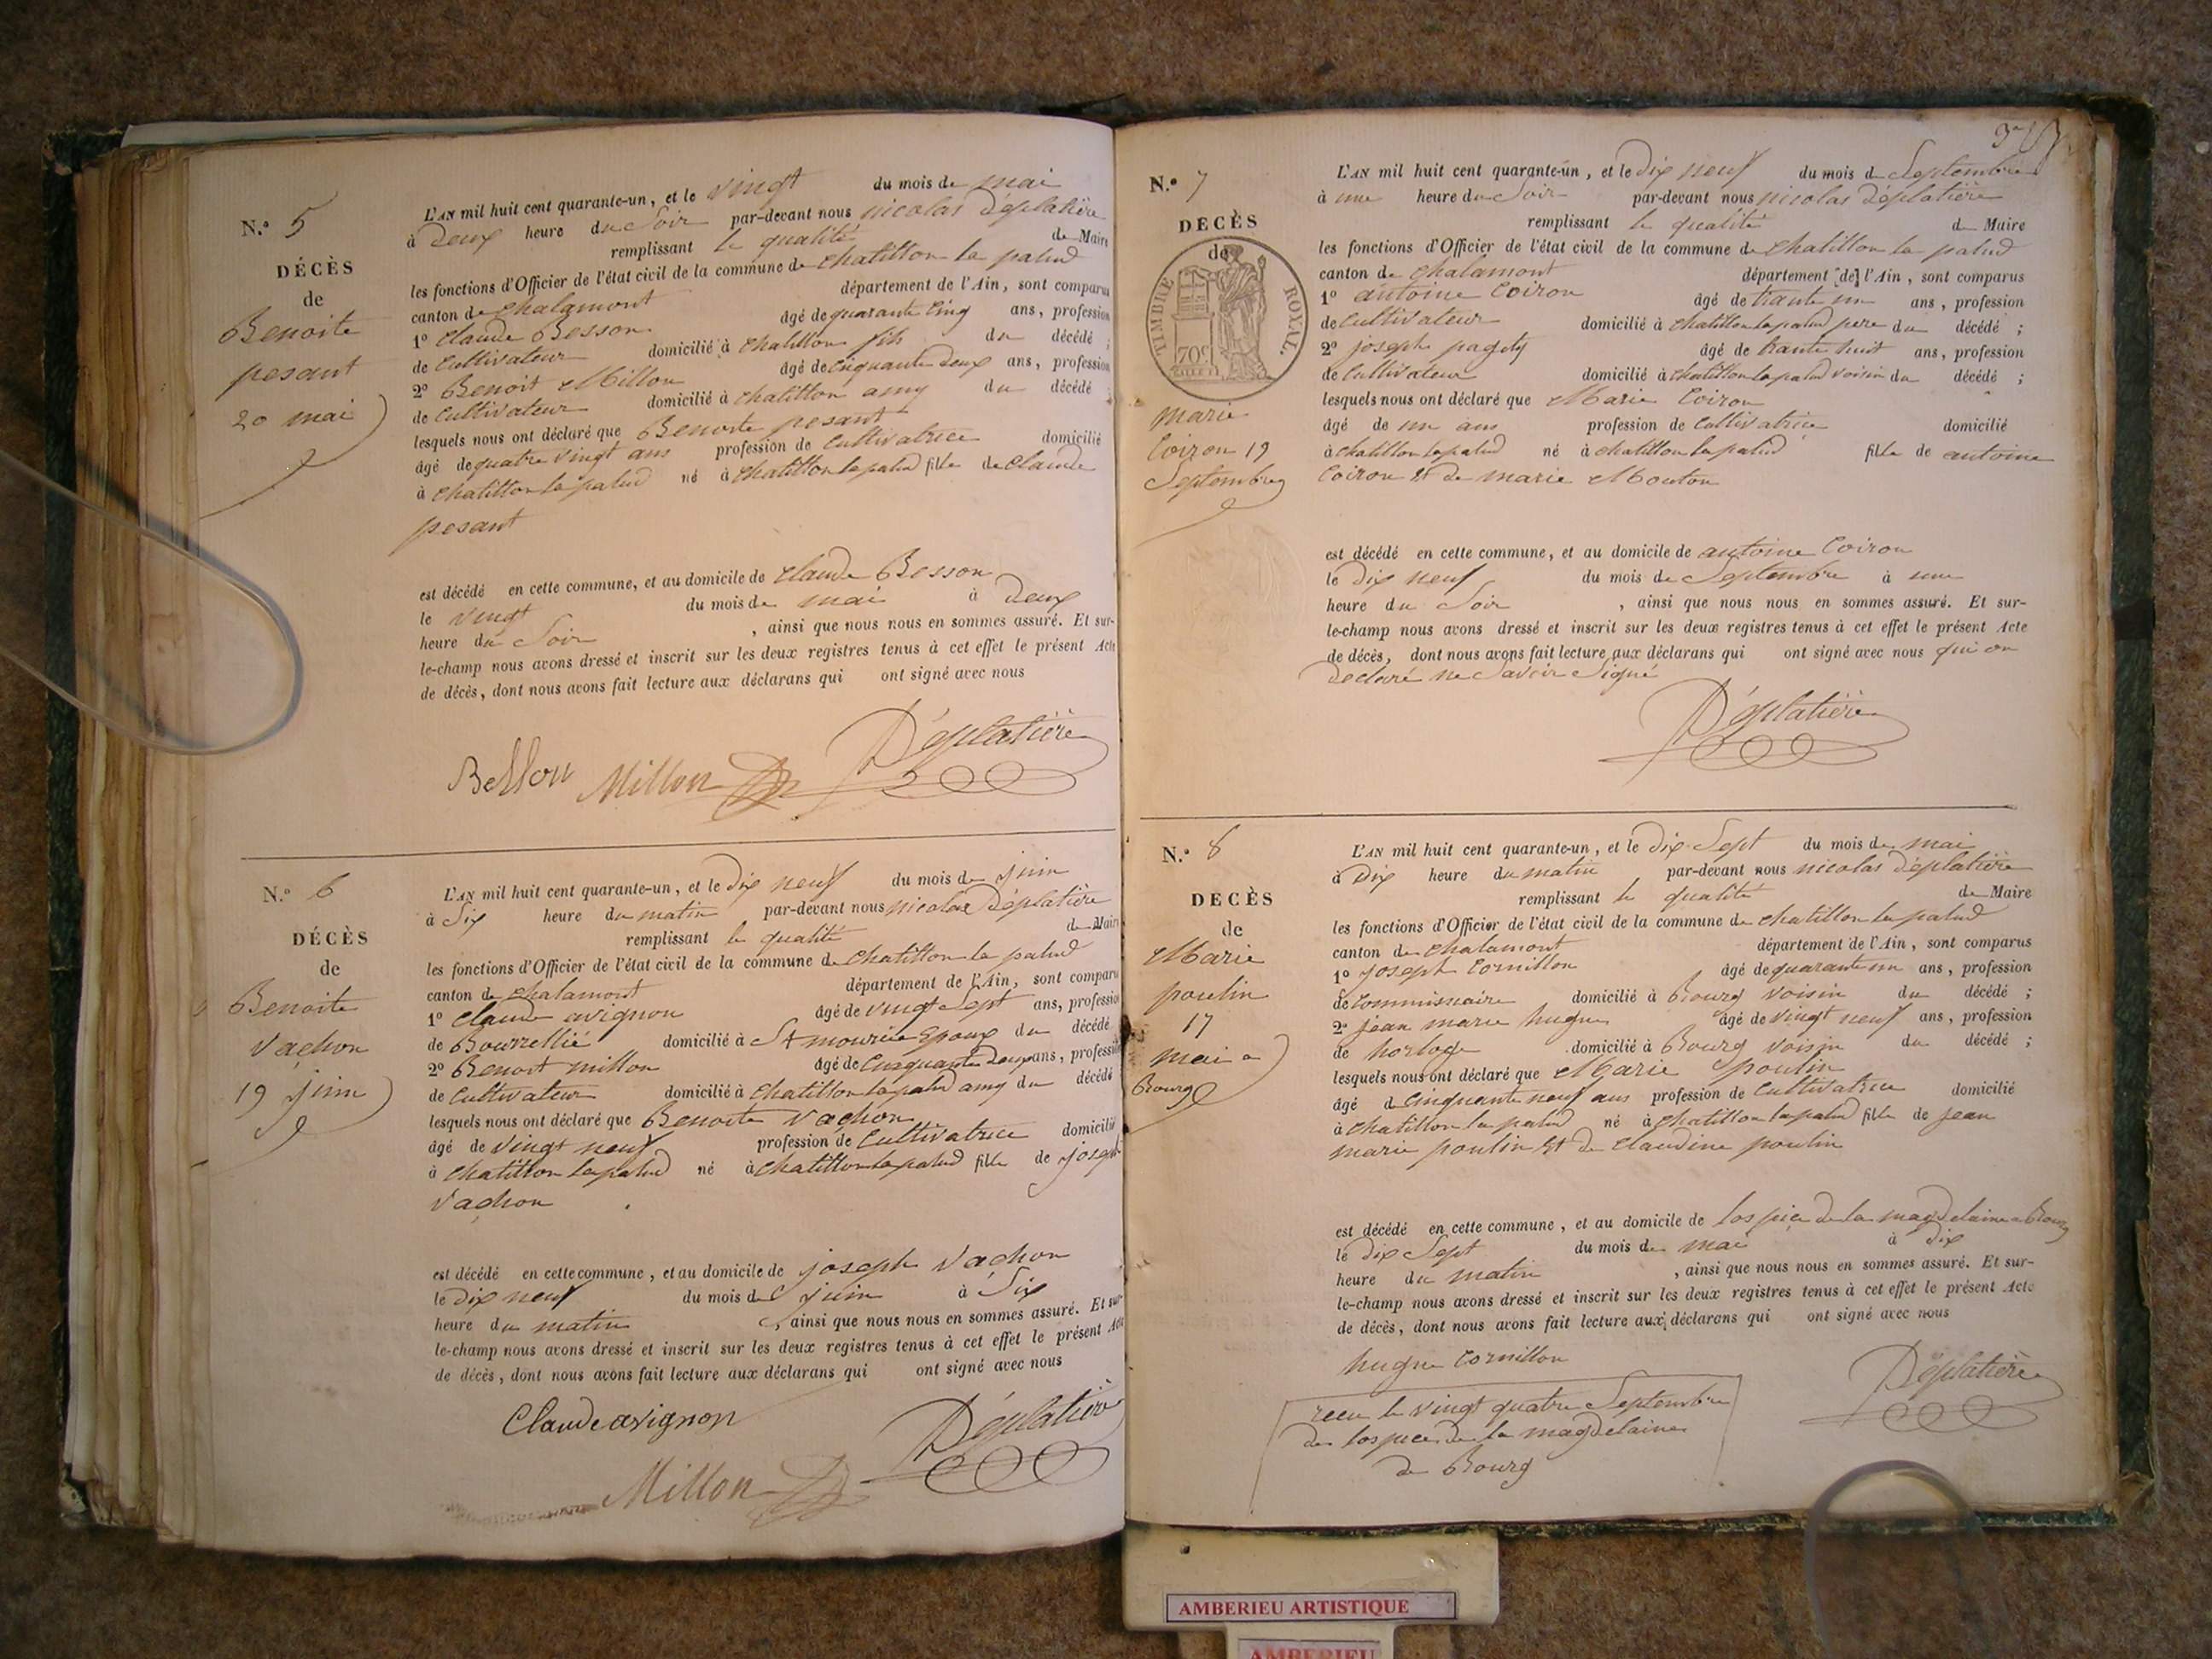 N.° 5
DÉCÈS
de
Benoite
pesant
20 mai
L'AN mil huit cent quarante-un, et le vingt du mois de mai
à Deux heure du Soir par-devant nous nicolas Déplatière
remplissant le qualité de Maire
les fonctions d'Officier de l'état civil de la commune de chatillon la palud
canton de chalamont département de l'Ain, sont comparus
1° claude Besson âgé de quarante Cinq ans, profession
de Cultivateur domicilié à chatillon fils du décédé ;
2° Benoit Millon âgé de Cinquante Deux ans, profession
de Cultivateur domicilié à chatillon amy du décédé
lesquels nous ont déclaré que Benoite pesant
âgé de quatre vingt ans profession de Cultivatrice domicilié
à chatillon la palud né à chatillon la palud fille de claude
pesant
est décédé en cette commune, et au domicile de claude Besson
le vingt du mois de mai à Deux
heure du Soir , ainsi que nous nous en sommes assuré. Et sur-
le-champ nous avons dressé et inscrit sur les deux registres tenus à cet effet le présent Acte
de décès, dont nous avons fait lecture aux déclarans qui ont signé avec nous
Besson Millon Déplatière
N.° 6
DÉCÈS
de
Benoite
Vachon
19 juin
L'AN mil huit cent quarante-un, et le Dix neuf du mois de juin
à Six heure du matin par-devant nous nicolas Déplatière
remplissant le qualité de Maire
les fonctions d'Officier de l'état civil de la commune de chatillon la palud
canton de chalamont département de l'Ain, sont comparu
1° claude avignon âgé de vingt Sept ans, profession
de Bourrellié domicilié à St mourice Epoux du décédé
2° Benoit millon âgé de Cinquante Deux ans, profession
de Cultivateur domicilié à chatillon la palud amy du décédé
lesquels nous ont déclaré que Benoite Vachon
âgé de vingt neuf profession de Cultivatrice domicilié
à chatillon la palud né à chatillon la palud fille de joseph
Vachon
est décédé en cette commune, et au domicile de joseph Vachon
le Dix neuf du mois de juin à Six
heure du matin , ainsi que nous nous en sommes assuré. Et sur-
le-champ nous avons dressé et inscrit sur les deux registres tenus à cet effet le présent Acte
de décès, dont nous avons fait lecture aux déclarans qui ont signé avec nous
Claude avignon Déplatière
Millon
N.° 7
DÉCÈS
de
TIMBRE ROYAL.
70c
marie
Coiron 19
Septembre
L'AN mil huit cent quarante-un, et le Dix neuf du mois de Septembre
à une heure du Soir par-devant nous nicolas Déplatière
remplissant le qualité de Maire
les fonctions d'Officier de l'état civil de la commune de chatillon la palud
canton de chalamont département de l'Ain, sont comparus
1° antoine Coiron âgé de trante un ans, profession
de Cultivateur domicilié à chatillon la palud pere du décédé ;
2° joseph âgé de trante huit ans, profession
de Cultivateur domicilié à chatillon la palud voisin du décédé ;
lesquels nous ont déclaré que Marie Coiron
âgé de un ans profession de Cultivatrice domicilié
à chatillon la palud né à chatillon la palud fille de antoine
Coiron et de marie Mouton
est décédé en cette commune, et au domicile de antoine Coiron
le Dix neuf du mois de Septembre à une
heure du Soir , ainsi que nous nous en sommes assuré. Et sur-
le-champ nous avons dressé et inscrit sur les deux registres tenus à cet effet le présent Acte
de décès, dont nous avons fait lecture aux déclarans qui ont signé avec nous qui on
Declaré ne Savoir Signé
Déplatière
N.° 8
DÉCÈS
de
Marie
poulin
17
mai a
Bourg
L'AN mil huit cent quarante-un, et le Dix Sept du mois de mai
à Dix heure du matin par-devant nous nicolas Déplatière
remplissant le qualité de Maire
les fonctions d'Officier de l'état civil de la commune de chatillon la palud
canton de chalamont département de l'Ain, sont comparus
1° joseph Cornillon âgé de quarante un ans, profession
de Commissaire domicilié à Bourg voisin du décédé ;
2° jean marie hugue âgé de vingt neuf ans, profession
de horloge domicilié à Bourg voisin du décédé ;
lesquels nous ont déclaré que Marie poulin
âgé de Cinquante neuf ans profession de Cultivatrice domicilié
à chatillon la palud né à chatillon la palud fille de jean
marie poulin et de claudine poulin
est décédé en cette commune, et au domicile de lospice de la magdelaine a Bourg
le Dix Sept du mois de mai à Dix
heure du matin , ainsi que nous nous en sommes assuré. Et sur-
le-champ nous avons dressé et inscrit sur les deux registres tenus à cet effet le présent Acte
de décès, dont nous avons fait lecture aux déclarans qui ont signé avec nous
hugue Cornillon Déplatière
recu le vingt quatre Septembre
de lospice de la magdelaine
de Bourg
AMBERIEU ARTISTIQUE
AMBERIEU